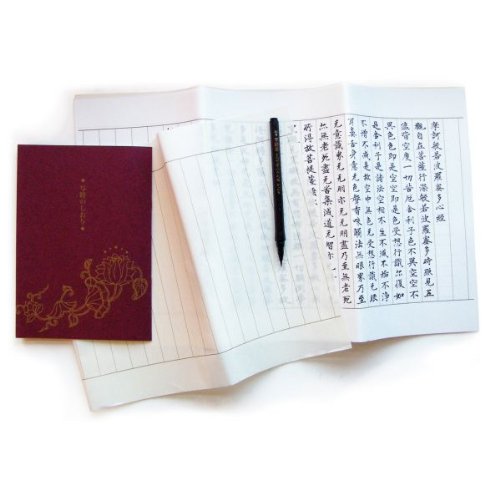 写経のしおり
摩訶般若波羅蜜多心經
觀自在菩薩行深般若波羅蜜多時照見五
蘊皆空度一切苦厄舍利子色不異空空不
異色色即是空空即是色受想行識亦復如
是舍利子是諸法空相不生不滅不垢不淨
不増不減是故空中無色无受想行識无眼
耳鼻舌身意无色聲香味觸法無眼界乃至
无意識界无无明亦无无明盡乃至無老死
亦無老死盡无苦集滅道无智亦无
所得故菩提薩